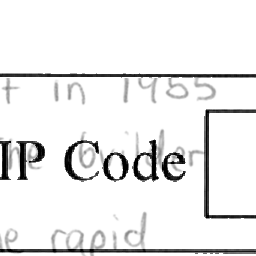 t in 1955
IP Code
the builder
e rapid